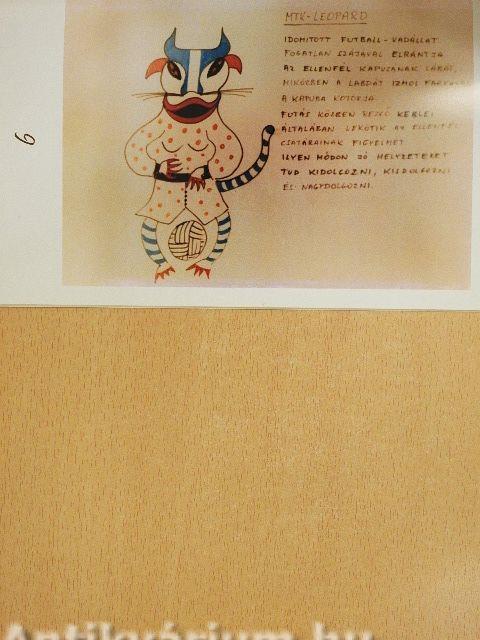 MTK-LEOPARD
IDOMITOTT FUTBALL-VADÁLLAT.
FOGATLAN SZÁJÁVAL ELRÁNTJA
AZ ELLENFÉL KAPUSÁNAK LÁBÁT,
MIKÖZBEN A LABDÁT IZMOS
A KAPUBA KOTORJA.
FUTÁS KÖZBEN REZGŐ KEBLEI
ÁLTALÁBAN LEKÖTIK AZ ELLENFÉL
CSATÁRAINAK FIGYELMÉT
ILYEN MÓDON JÓ HELYZETEKET
TUD KIDOLGOZNI, KISDOLGOZNI
ÉS NAGYDOLGOZNI.
6
Antikvárium.hu